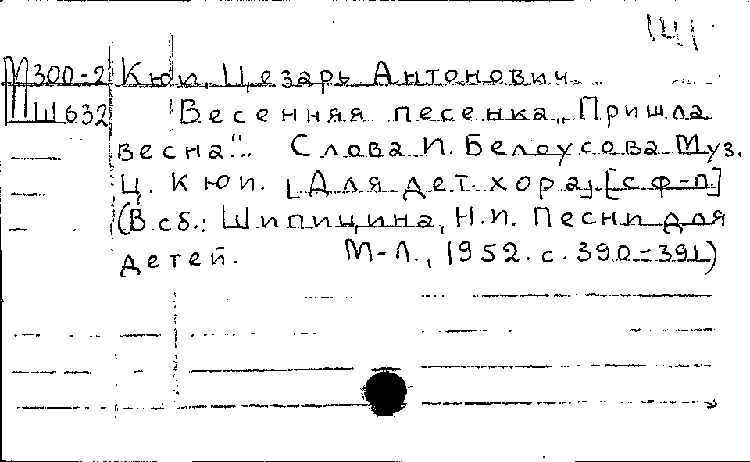 141
М300-2 Кюи, Цезарь Антонович.
Ш632 Весенняя песенка „Пришла
весна". Слова И. Белоусова Муз.
Ц. Кюи. [Для дет. хора]. [с ф-п]
(В сб.: Шипицина, Н.И. Песни для
детей. М-Л., 1952. с. 390-391)